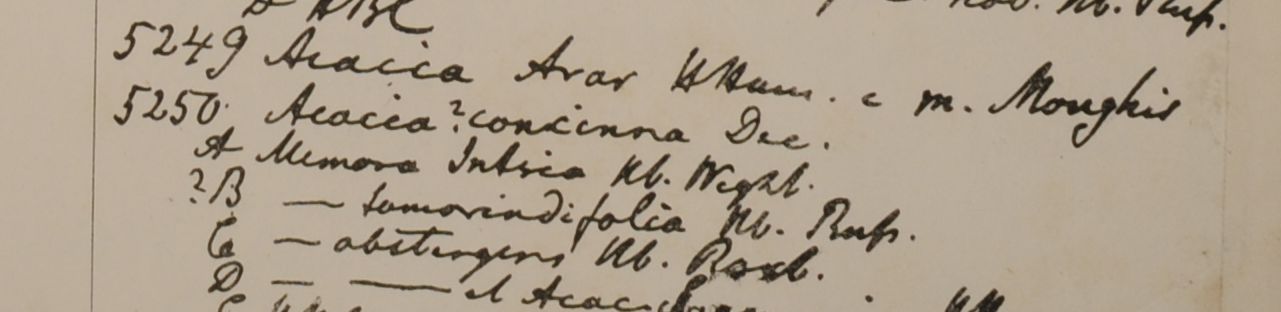 D HBC Hb. Rup.
5249 Acacia Arar HHam. c m. Monghir
5250 Acacia? concinna Dec.
A Memora Intsia Hb. Wight.
?B — tamarindifolia Hb. Rup.
C — abstergens Hb. Roxb.
D — — et Acac